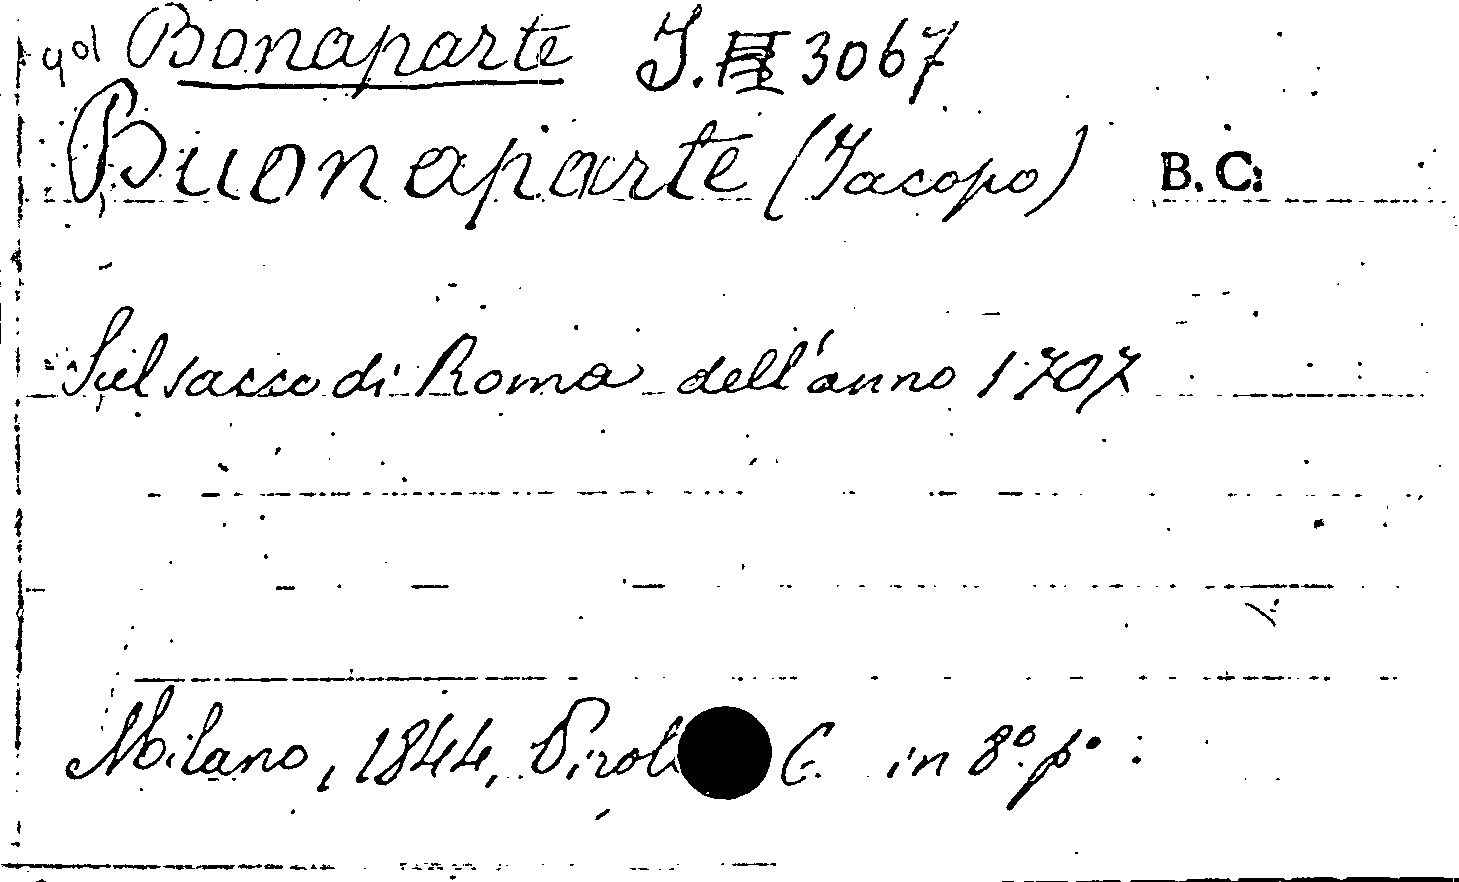 Bonaparte J. 3067
Buonaparte (Jacopo) B. C.
Sul sacco di Roma dell'anno 1707
Milano, 1844, Pirol C. in 8º. pº.